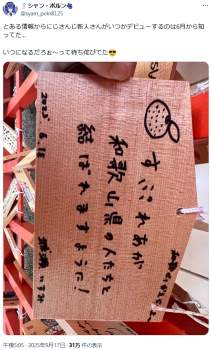 シャン・ポルン
@syam_poln8125
とある情報からにじさんじ新人さんがいつかデビューするのは6月から知ってた...
いつになるだろぉ～って待ち侘びてた😎
すごれあが
和歌山県の人たちと
結ばれますように!
2025 6.18
午後5:05 · 2025年9月17日 · 31万 件の表示